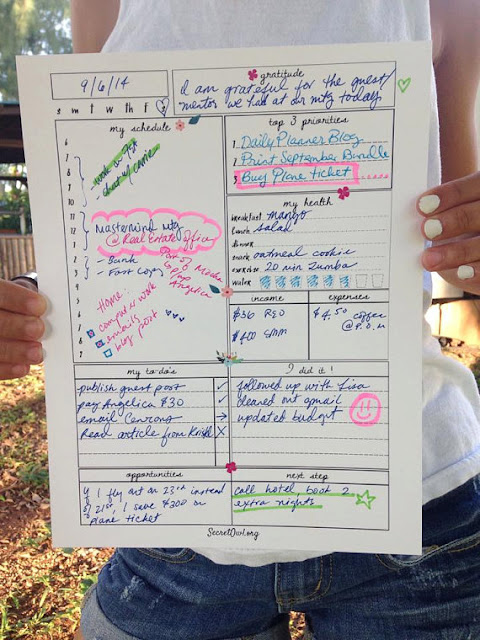 9/6/14
s m t w th f s
gratitude
I am grateful for the guest/
mentor we had at our mtg today
my schedule
6
7
8
9
10
11
12
1
2
3
4
5
6
7
- work on
- chat w/ Carrie
Mastermind mtg
@ Real Estate Office
- Bank
- Fast Copy
P.O.M
Angelica
Home:
computer work
emails
blog post
top 3 priorities
1. Daily Planner Blog
2. Print September Bundle
3. Buy Plane ticket
my health
breakfast mango
lunch salad
dinner
snack oatmeal cookie
exercise 20 min Zumba
water
income
$36 REO
$400 SMM
expenses
$4.50 coffee
@ P.O.M
my to-do's
publish guest post ✓
pay Angelica $30 ✓
email →
Read article from X
I did it!
followed up with Lisa
cleared out gmail
updated budget
opportunities
if I fly out on 23rd instead
of 21st, I save $300 on
plane ticket
next step
call hotel, book 2
extra nights
SecretOwl.org